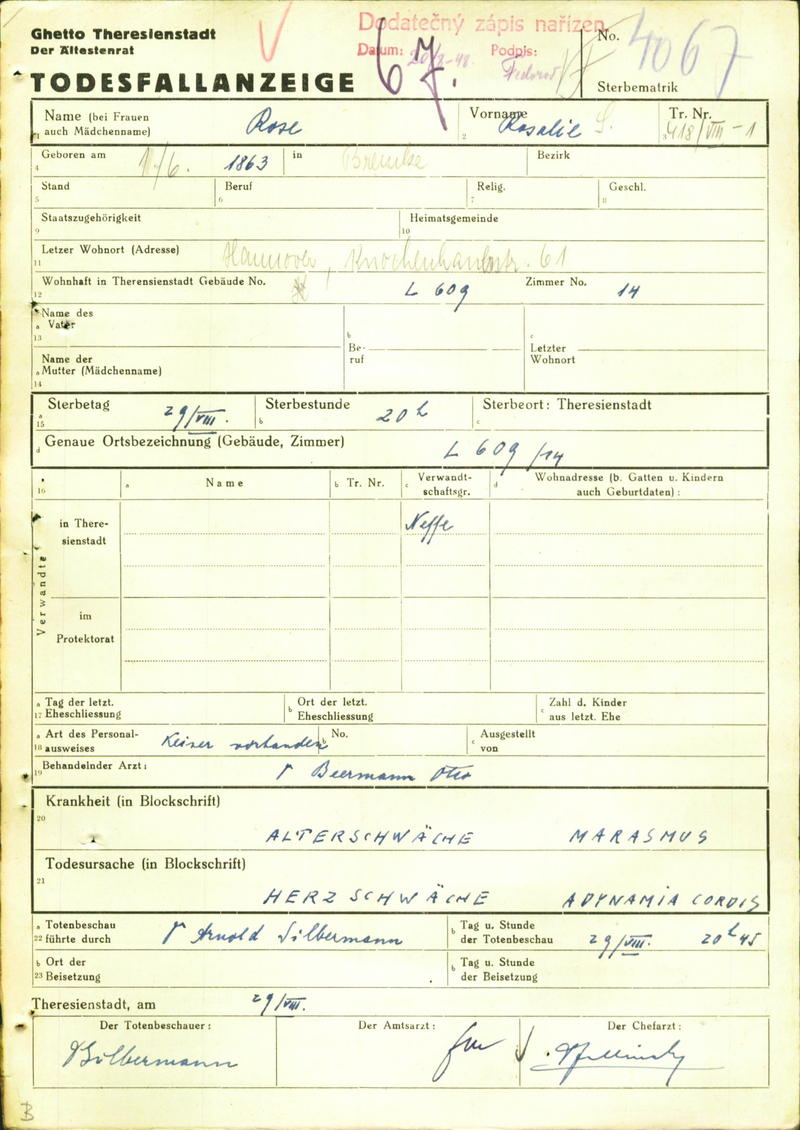 Ghetto Theresienstadt
Der Ältestenrat
Dodatečný zápis nařízen
Datum: Podpis:
67.
No. 4067
TODESFALLANZEIGE
Sterbematrik
Name (bei Frauen auch Mädchenname) Rose
Vorname Rosalie S.
Tr. Nr. 418/VIII-1
1 2 3
Geboren am 1./6. 1863 in Bezirk
4
Stand Beruf Relig. Geschl.
5 6 7 8
Staatszugehörigkeit Heimatsgemeinde
9 10
Letzer Wohnort (Adresse) Hannover, Knochenhauerstr. 61
11
Wohnhaft in Theresienstadt Gebäude No. L 609 Zimmer No. 14
12
Name des
a Vater
13
b Beruf
c Letzter Wohnort
Name der
a Mutter (Mädchenname)
14
Sterbetag 29/VIII. Sterbestunde 20 h Sterbeort: Theresienstadt
a 15 b c
d Genaue Ortsbezeichnung (Gebäude, Zimmer) L 609/14
16 a Name b Tr. Nr. c Verwandtschaftsgr. d Wohnadresse (b. Gatten u. Kindern auch Geburtdaten):
Verwandte
in Theresienstadt Neffe
im Protektorat
a Tag der letzt. b Ort der letzt. c Zahl d. Kinder
17 Eheschliessung Eheschliessung aus letzt. Ehe
a Art des Personal- Keiner vorhanden b No. c Ausgestellt
18 ausweises von
Behandelnder Arzt: Dr Beermann Otto
19
Krankheit (in Blockschrift)
20
ALTERSCHWÄCHE MARASMUS
Todesursache (in Blockschrift)
21
HERZSCHWÄCHE ADYNAMIA CORDIS
a Totenbeschau b Tag u. Stunde
22 führte durch Dr Arnold Silbermann der Totenbeschau 29/VIII. 20 h 45
b Ort der b Tag u. Stunde
23 Beisetzung der Beisetzung
Theresienstadt, am 29/VIII.
Der Totenbeschauer: Der Amtsarzt: Der Chefarzt:
DrSilbermann
B